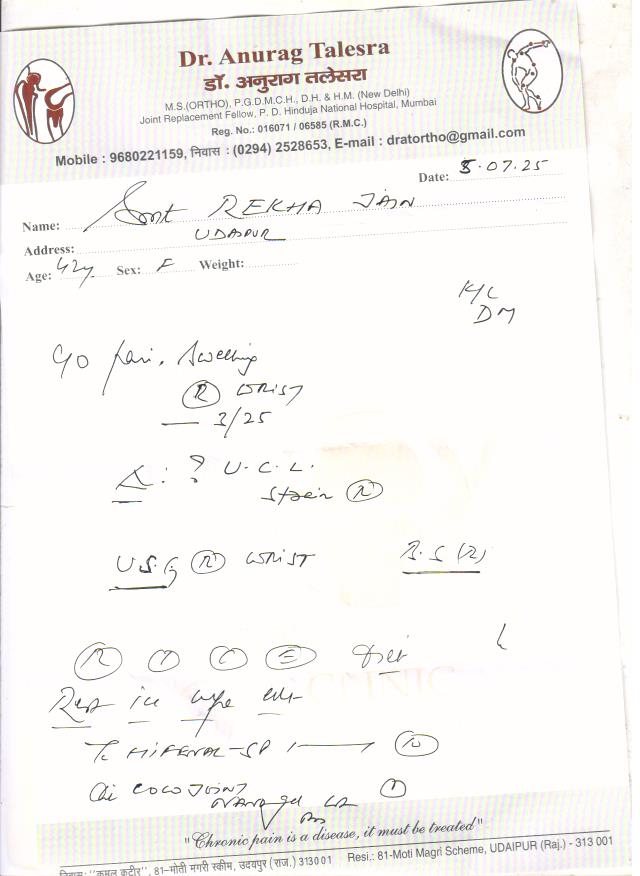 Dr. Anurag Talesra
डॉ. अनुराग तलेसरा
M.S.(ORTHO), P.G.D.M.C.H., D.H. & H.M. (New Delhi)
Joint Replacement Fellow, P. D. Hinduja National Hospital, Mumbai
Reg. No.: 016071 / 06585 (R.M.C.)
Mobile : 9680221159, निवास : (0294) 2528653, E-mail : dratortho@gmail.com
Date: 5.07.25
Name: Smt REKHA JAIN
Address: UDAIPUR
Age: 42y Sex: F Weight:
K/C
DM
Swelling
R WRIST
3/25
Δ : ? U.C.L.
Strain R
U.S.G R WRIST B.S (R)
R I C E diet
Rest in
HIFENAL-SP 1
COCO JOINT
CLINIC
"Chronic pain is a disease, it must be treated"
निवास: "कमल कुटीर", 81-मोती मगरी स्कीम, उदयपुर (राज.) 313001 Resi.: 81-Moti Magri Scheme, UDAIPUR (Raj.) - 313 001